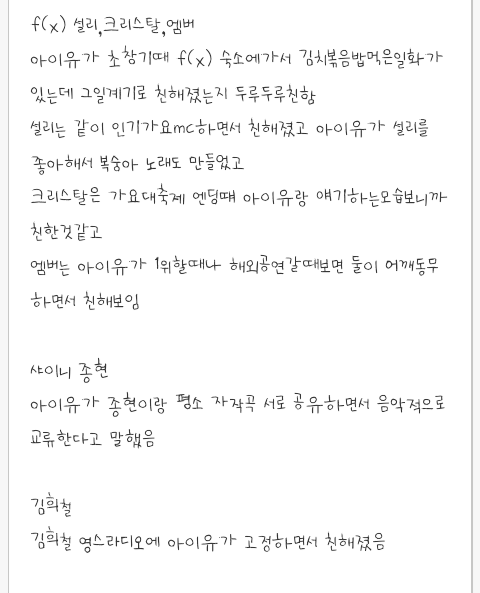 f(x) 설리,크리스탈,엠버
아이유가 초창기때 f(x) 숙소에가서 김치볶음밥먹은일화가
있는데 그일계기로 친해졌는지 두루두루친함
설리는 같이 인기가요mc하면서 친해졌고 아이유가 설리를
좋아해서 복숭아 노래도 만들었고
크리스탈은 가요대축제 엔딩떄 아이유랑 얘기하는모습보니까
친한것같고
엠버는 아이유가 1위할때나 해외공연갈때보면 둘이 어깨동무
하면서 친해보임
샤이니 종현
아이유가 종현이랑 평소 자작곡 서로 공유하면서 음악적으로
교류한다고 말했음
김희철
김희철 영스라디오에 아이유가 고정하면서 친해졌음